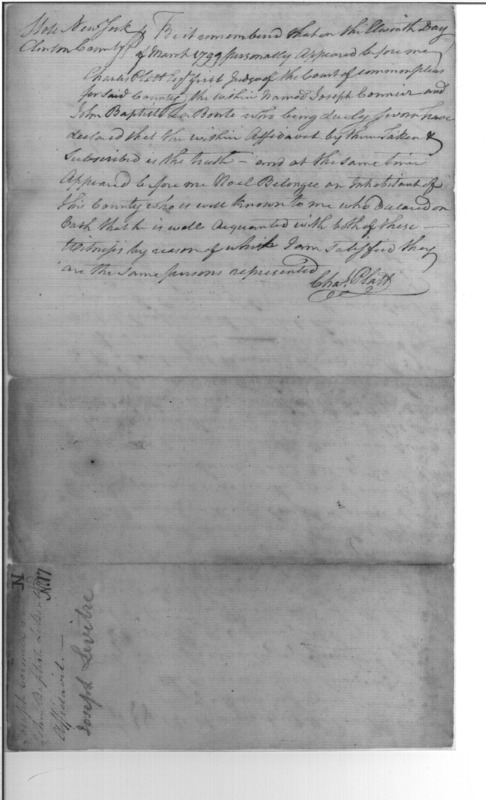 State New York } Be it remembered that on the Eleventh Day
Clinton County } of March 1799 personally Appeared before me
Charles Platt Esqr first Judge of the Court of common pleas
for Said County the within Named Joseph Cormier and
John Baptist La Bonte who being duely Sworn have
declared that the within Affidavit by them Taken &
Subscribed is the truth – and at the Same time
Appeared before me Noel Belongee an Inhabitant of
this County who is well Known to me who Declared on
Oath that he is well Acquanted with both of these
Witness's by reason of which I am Satisfied they
are the Same persons represented
Chas. Platt
N
No. 17
Joseph
John Baptist
Affidavit –
Joseph Levitre